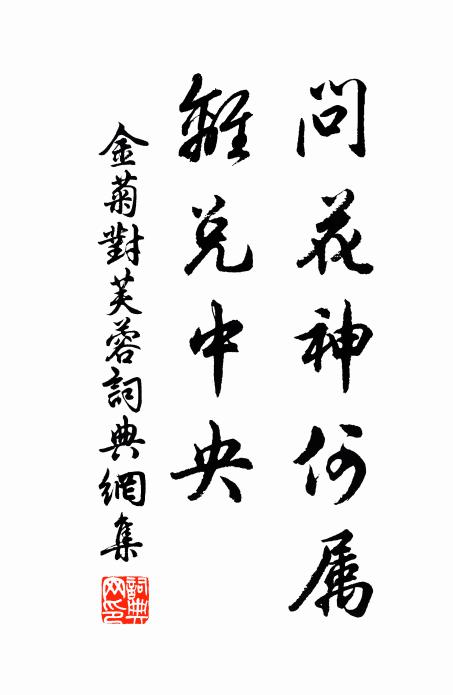 問花神何属
離兌中央
金菊對芙蓉詞典網集
詞典网印